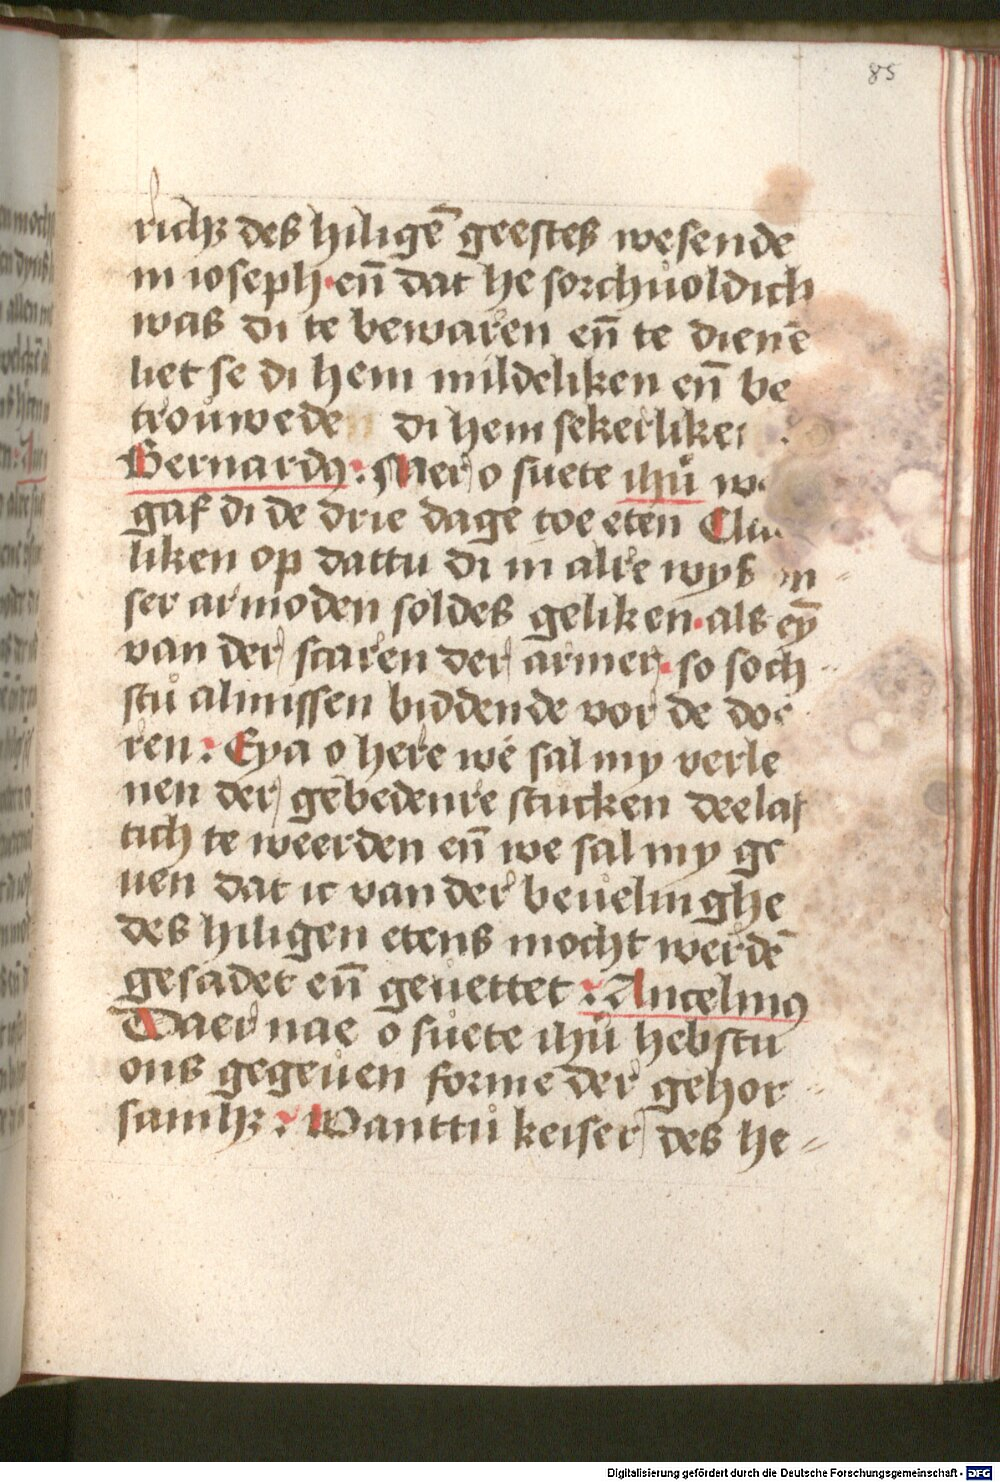 85
richꝫ des hiligē geestes wesende
in ioseph · en̄ dat he sorchuoldich
was di te bewaren en̄ te dienē
liet se di hem mildeliken en̄ be
trouwede di hem
Bernardꝰ : Mer o suete ihū
gaf di de drie dage toe eten
liken op dattu di in alre wys
ser armoden soldes geliken · als eyn̄
van der scaren der armer · so soch
stu almissen biddende vor de doe
ren : Eya o here we sal my verle
nen der gebedenre stucken deelaf
tich te weerden en̄ we sal my ge
uen dat ic van der beuelinghe
des hiligen etens mocht werdē
gesadet en̄ geuettet : Ancelmꝰ
Daer nae o suete ihū hebstu
ons gegeuen forme der gehor
samhꝫ : Wanttu keiser des he
Digitalisierung gefördert durch die Deutsche Forschungsgemeinschaft - DFG